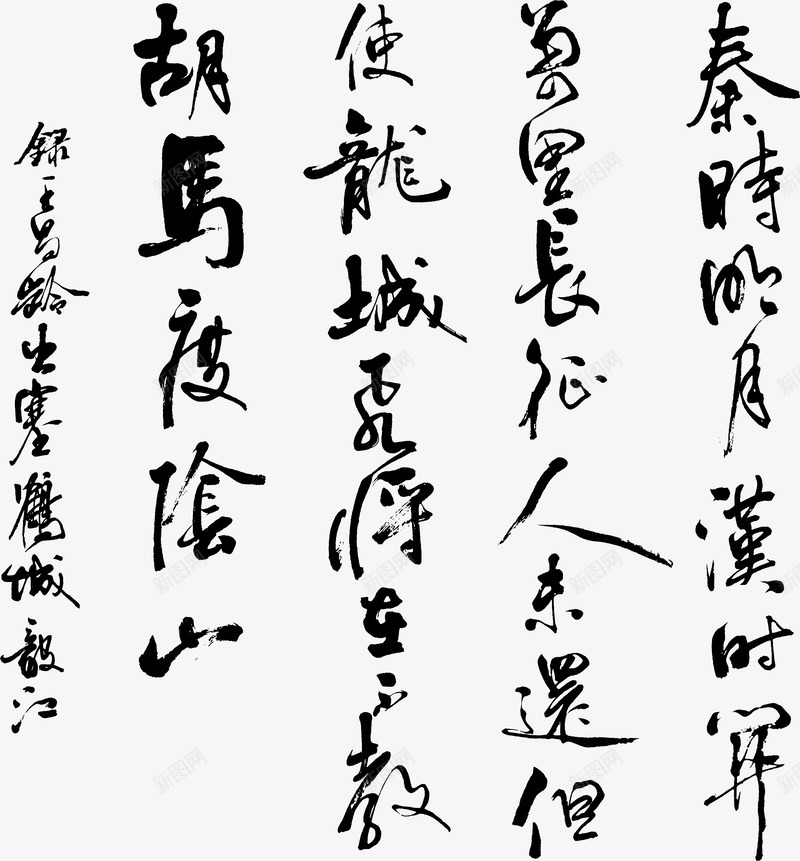 秦時明月漢时關
萬里長征人未還但
使龍城飛將在不教
胡馬度陰山
錄王昌齡出塞鶴城江